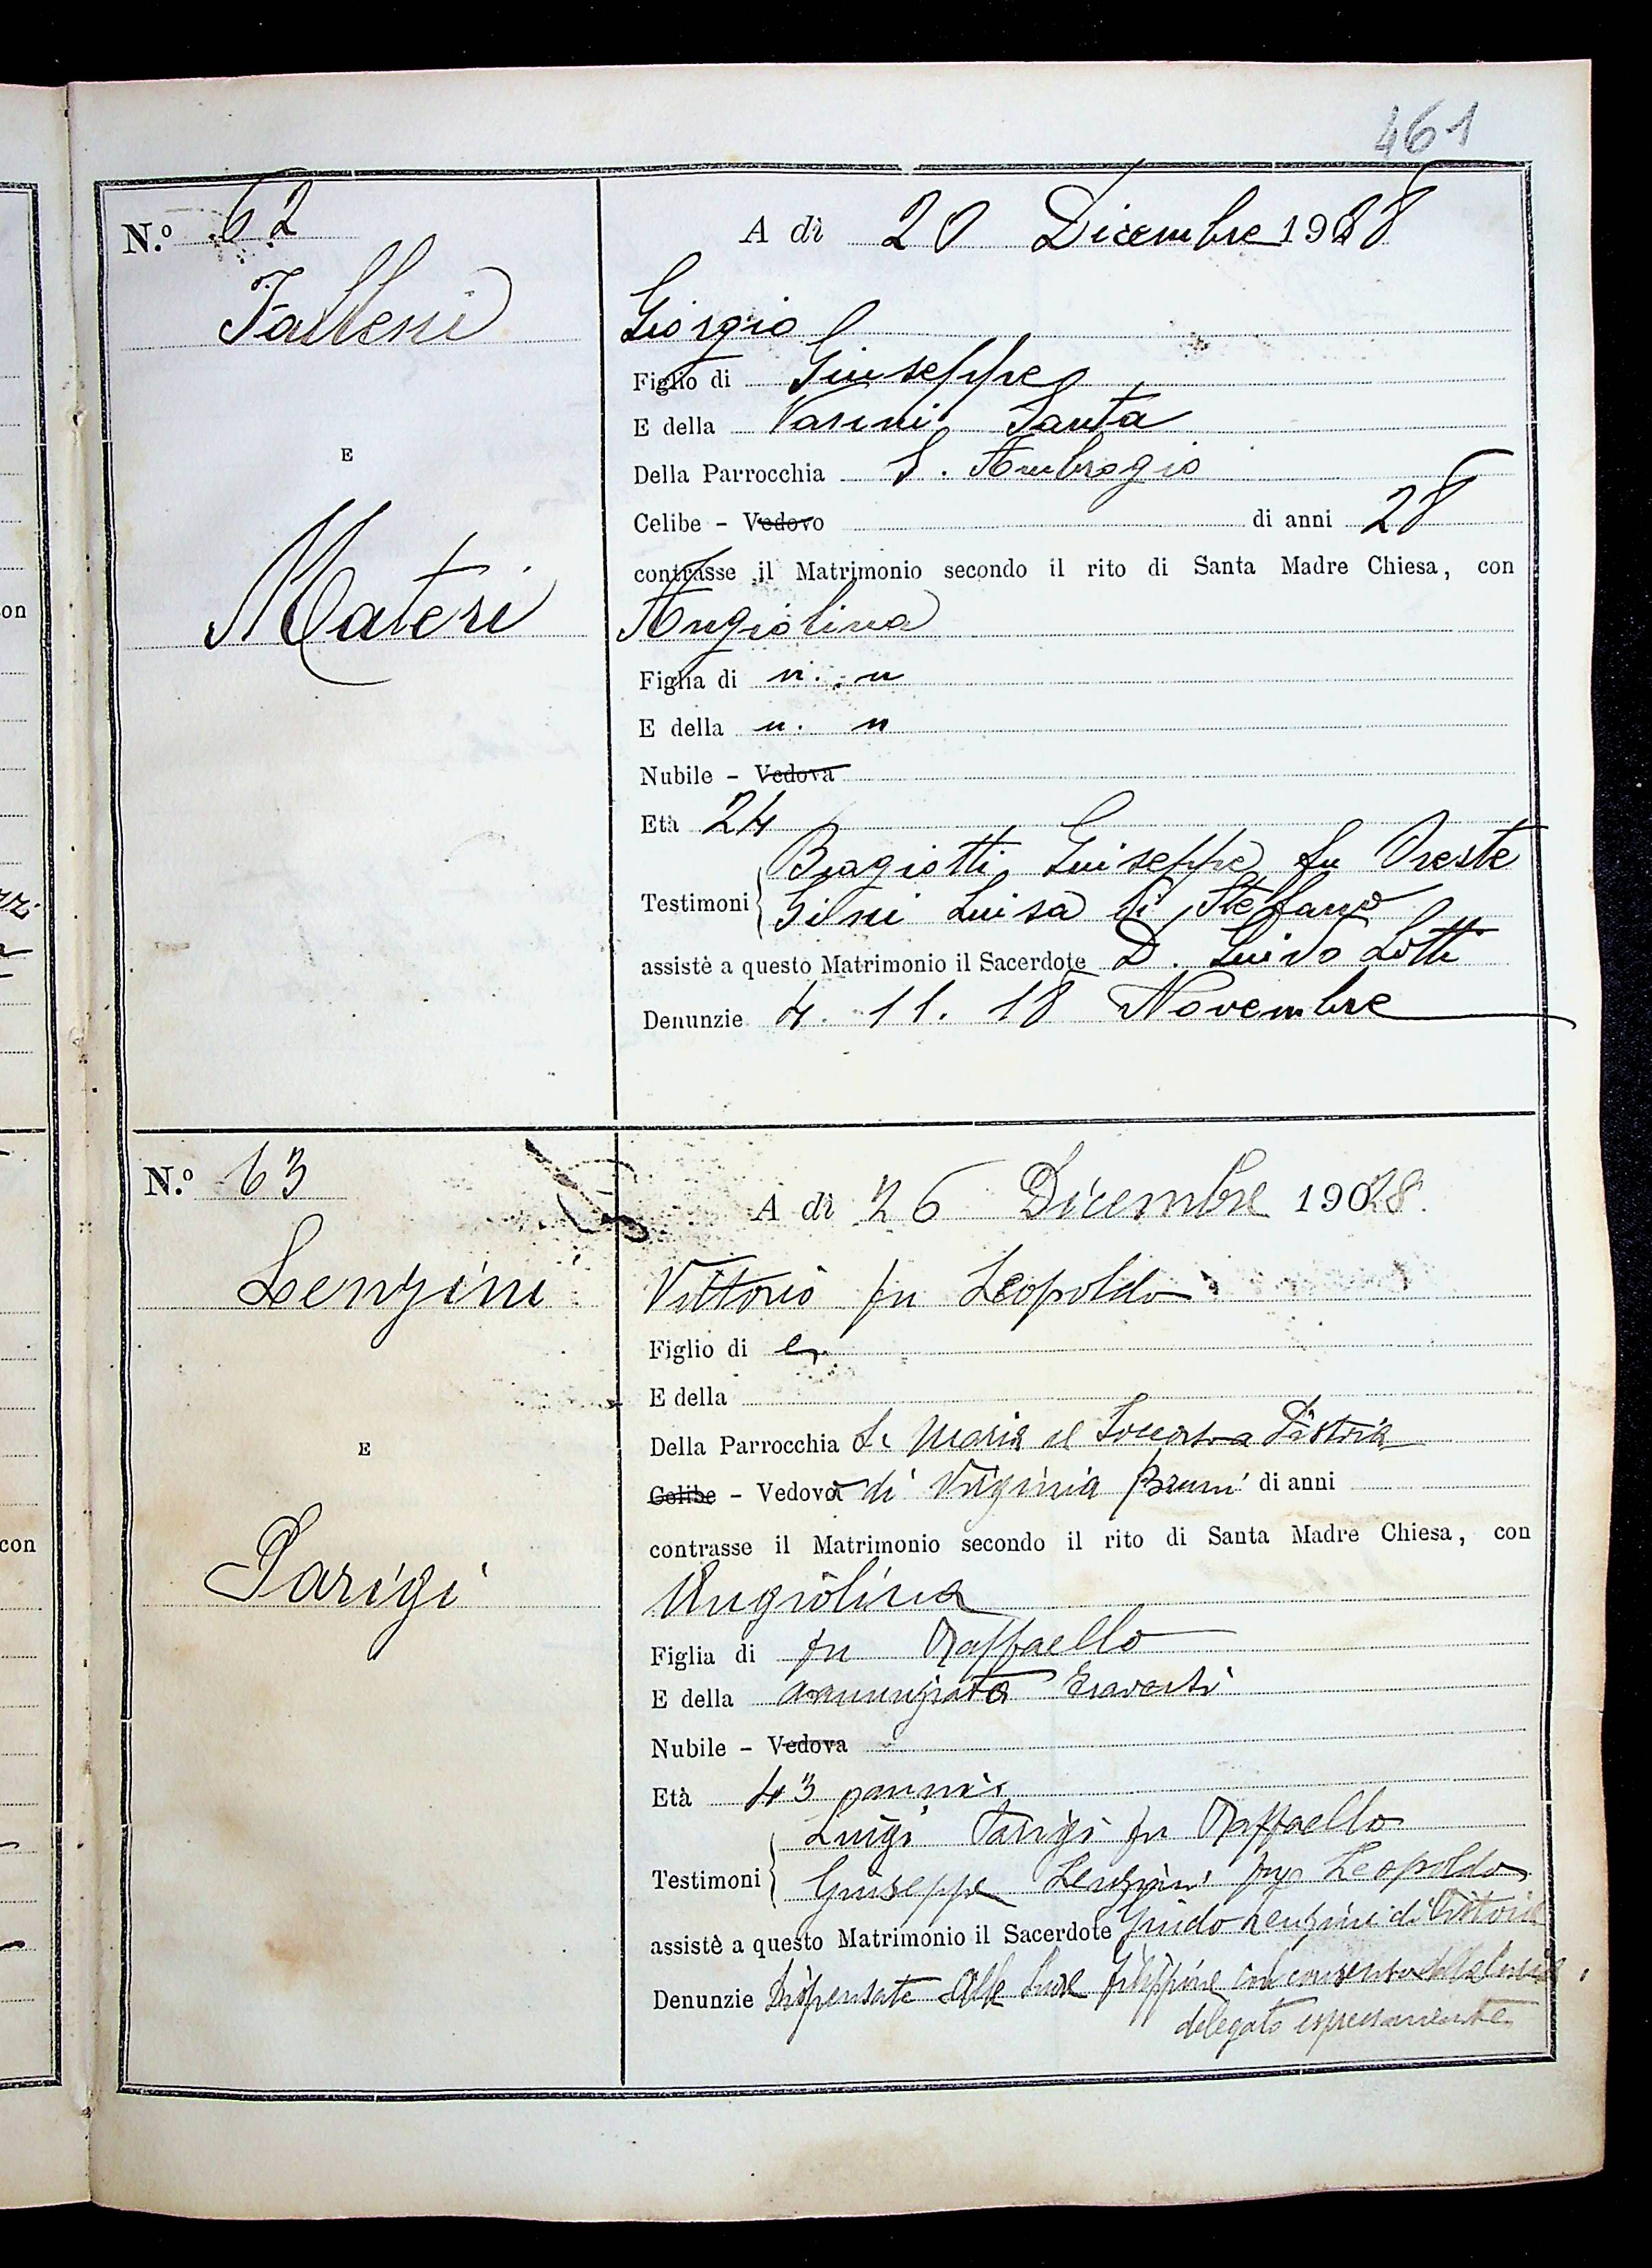 461
N.º 62
A dì 20 Dicembre 1928
Falleni
Giorgio
Figlio di Giuseppe
E della Vannini Santa
Della Parrocchia S. Ambrogio
E
Celibe - Vedovo di anni 28
contrasse il Matrimonio secondo il rito di Santa Madre Chiesa, con
Materi
Angiolina
Figlia di n. n
E della n. n
Nubile - Vedova
Età 24
Biagiotti Giuseppe fu Oreste
Testimoni
Luisa di Steffano
assistè a questo Matrimonio il Sacerdote D. Guido Lotti
Denunzie 4. 11. 18 Novembre
N.º 63
A dì 26 Dicembre 1928.
Lenzini
Vittorio fu Leopoldo
Figlio di
E della
Della Parrocchia S. Maria al Soccorso Pistoia
E
Celibe - Vedovo di Virginia Bruni di anni
contrasse il Matrimonio secondo il rito di Santa Madre Chiesa, con
Parigi
Angiolina
Figlia di fu Raffaello
E della Annunziata
Nubile - Vedova
Età 43
Luigi Parigi fu Raffaello
Testimoni
Giuseppe Lenzini fu Leopoldo
assistè a questo Matrimonio il Sacerdote Guido Lenzini di Vittorio
Denunzie Dispensate alle Suore Filippine con consenso
delegato espressamente
on
con